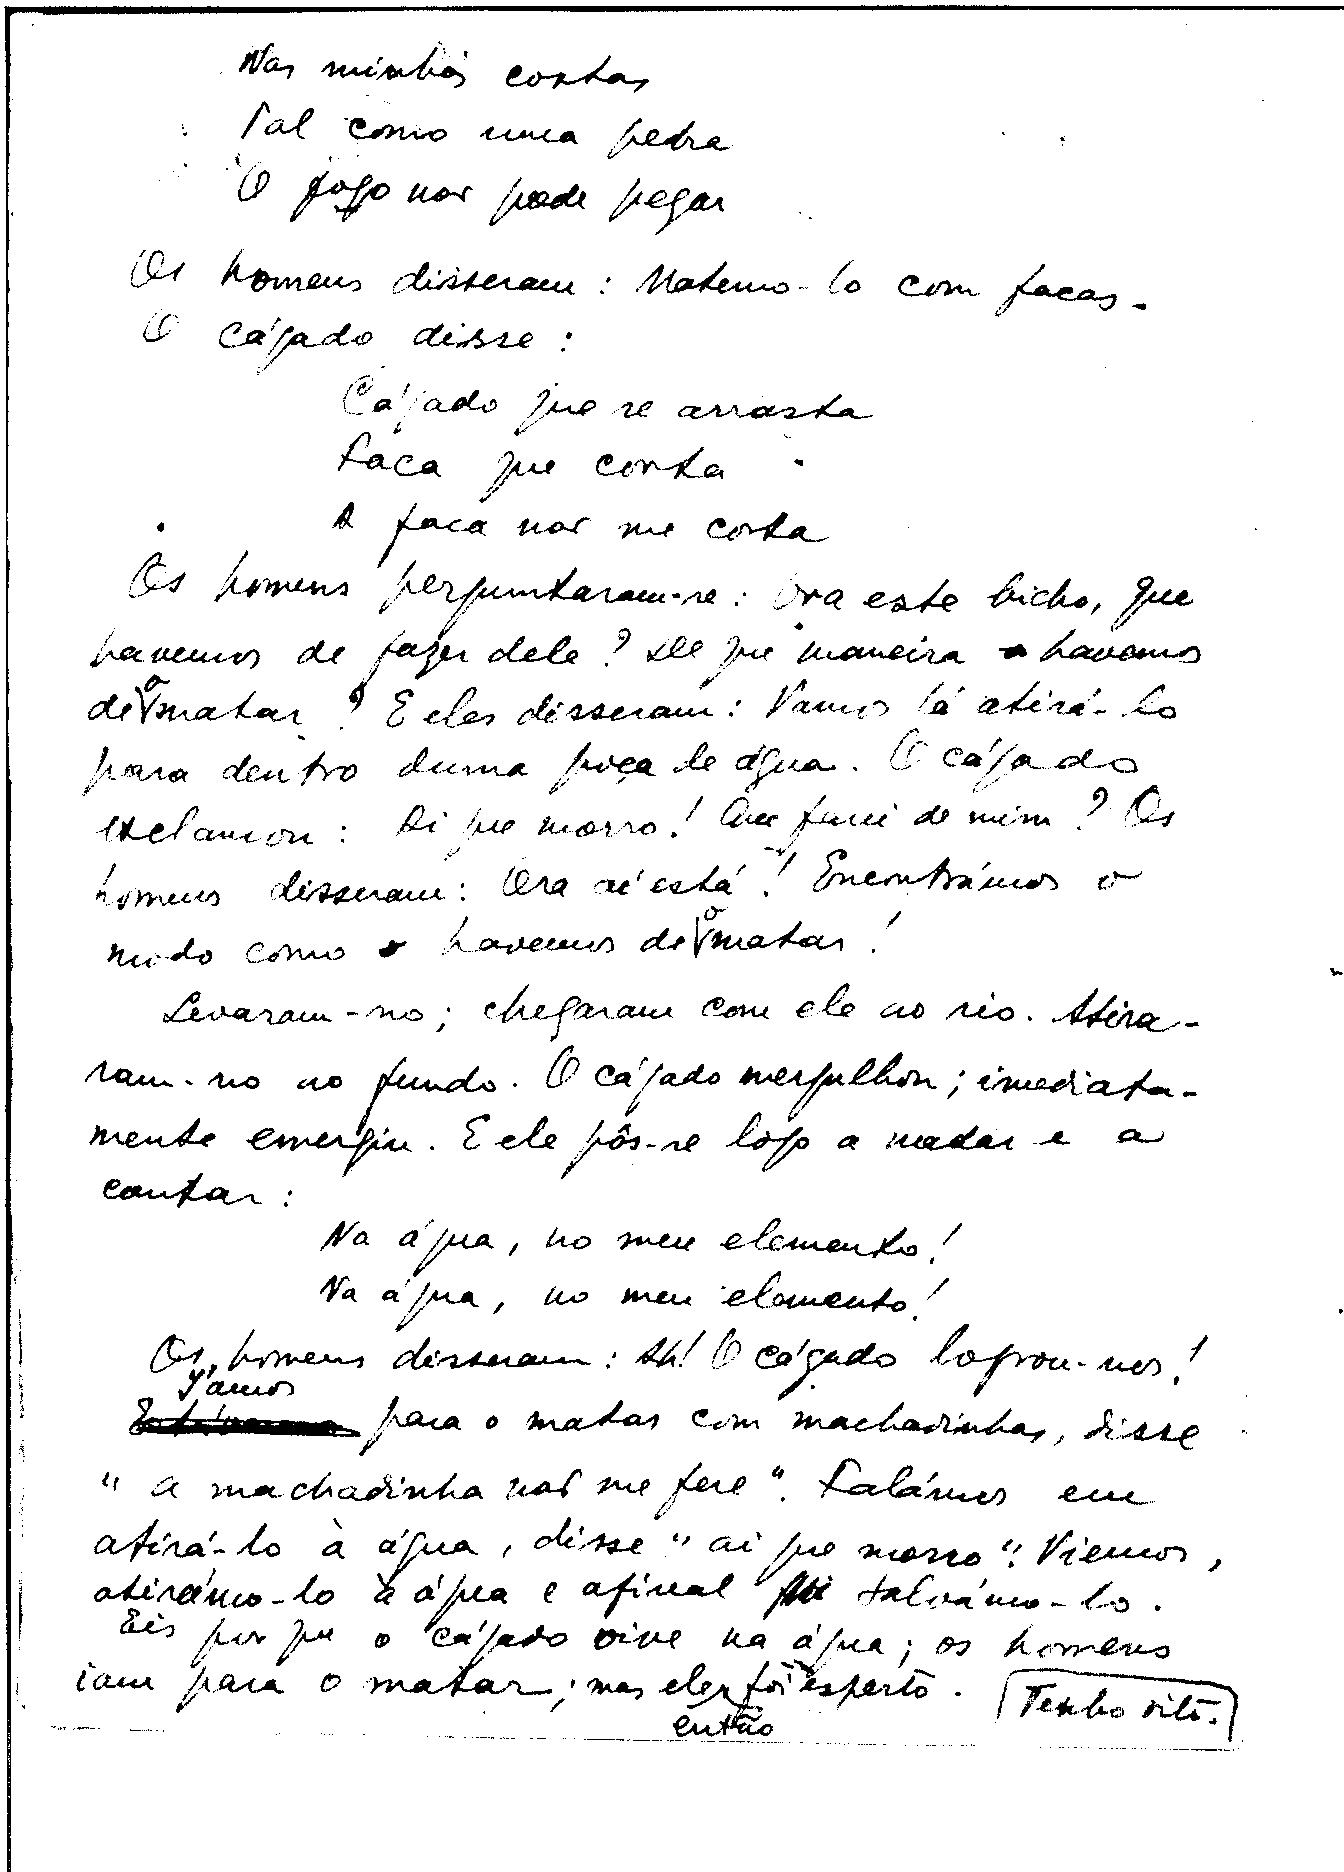 Nas minhas costas
Tal como uma pedra
O fogo não pode pegar
Os homens disseram: Matemo-lo com facas.
O cágado disse:
Cágado que se arrasta
Faca que corta
A faca não me corta
Os homens perguntaram-se: Ora este bicho, que
havemos de fazer dele? De que maneira havemos
de o matar? E eles disseram: Vamos lá atirá-lo
para dentro duma poça de água. O cágado
exclamou: Ai que morro! Que farei de mim? Os
homens disseram: Ora aí está! Encontrámos o
modo como havemos de o matar!
Levaram-no; chegaram com ele ao rio. Atira-
ram-no ao fundo. O cágado mergulhou; imediata-
mente emergiu. E ele pôs-se logo a nadar e a
cantar:
Na água, no meu elemento!
Na água, no meu elemento!
Os homens disseram: Ah! O cágado logrou-nos!
Íamos
para o matar com machadinhas, disse
"a machadinha não me fere". Falámos em
atirá-lo à água, disse "ai que morro". Viemos,
atirámo-lo à água e afinal salvámo-lo.
Eis por que o cágado vive na água; os homens
iam para o matar; mas ele foi esperto.
então
Texto oito.